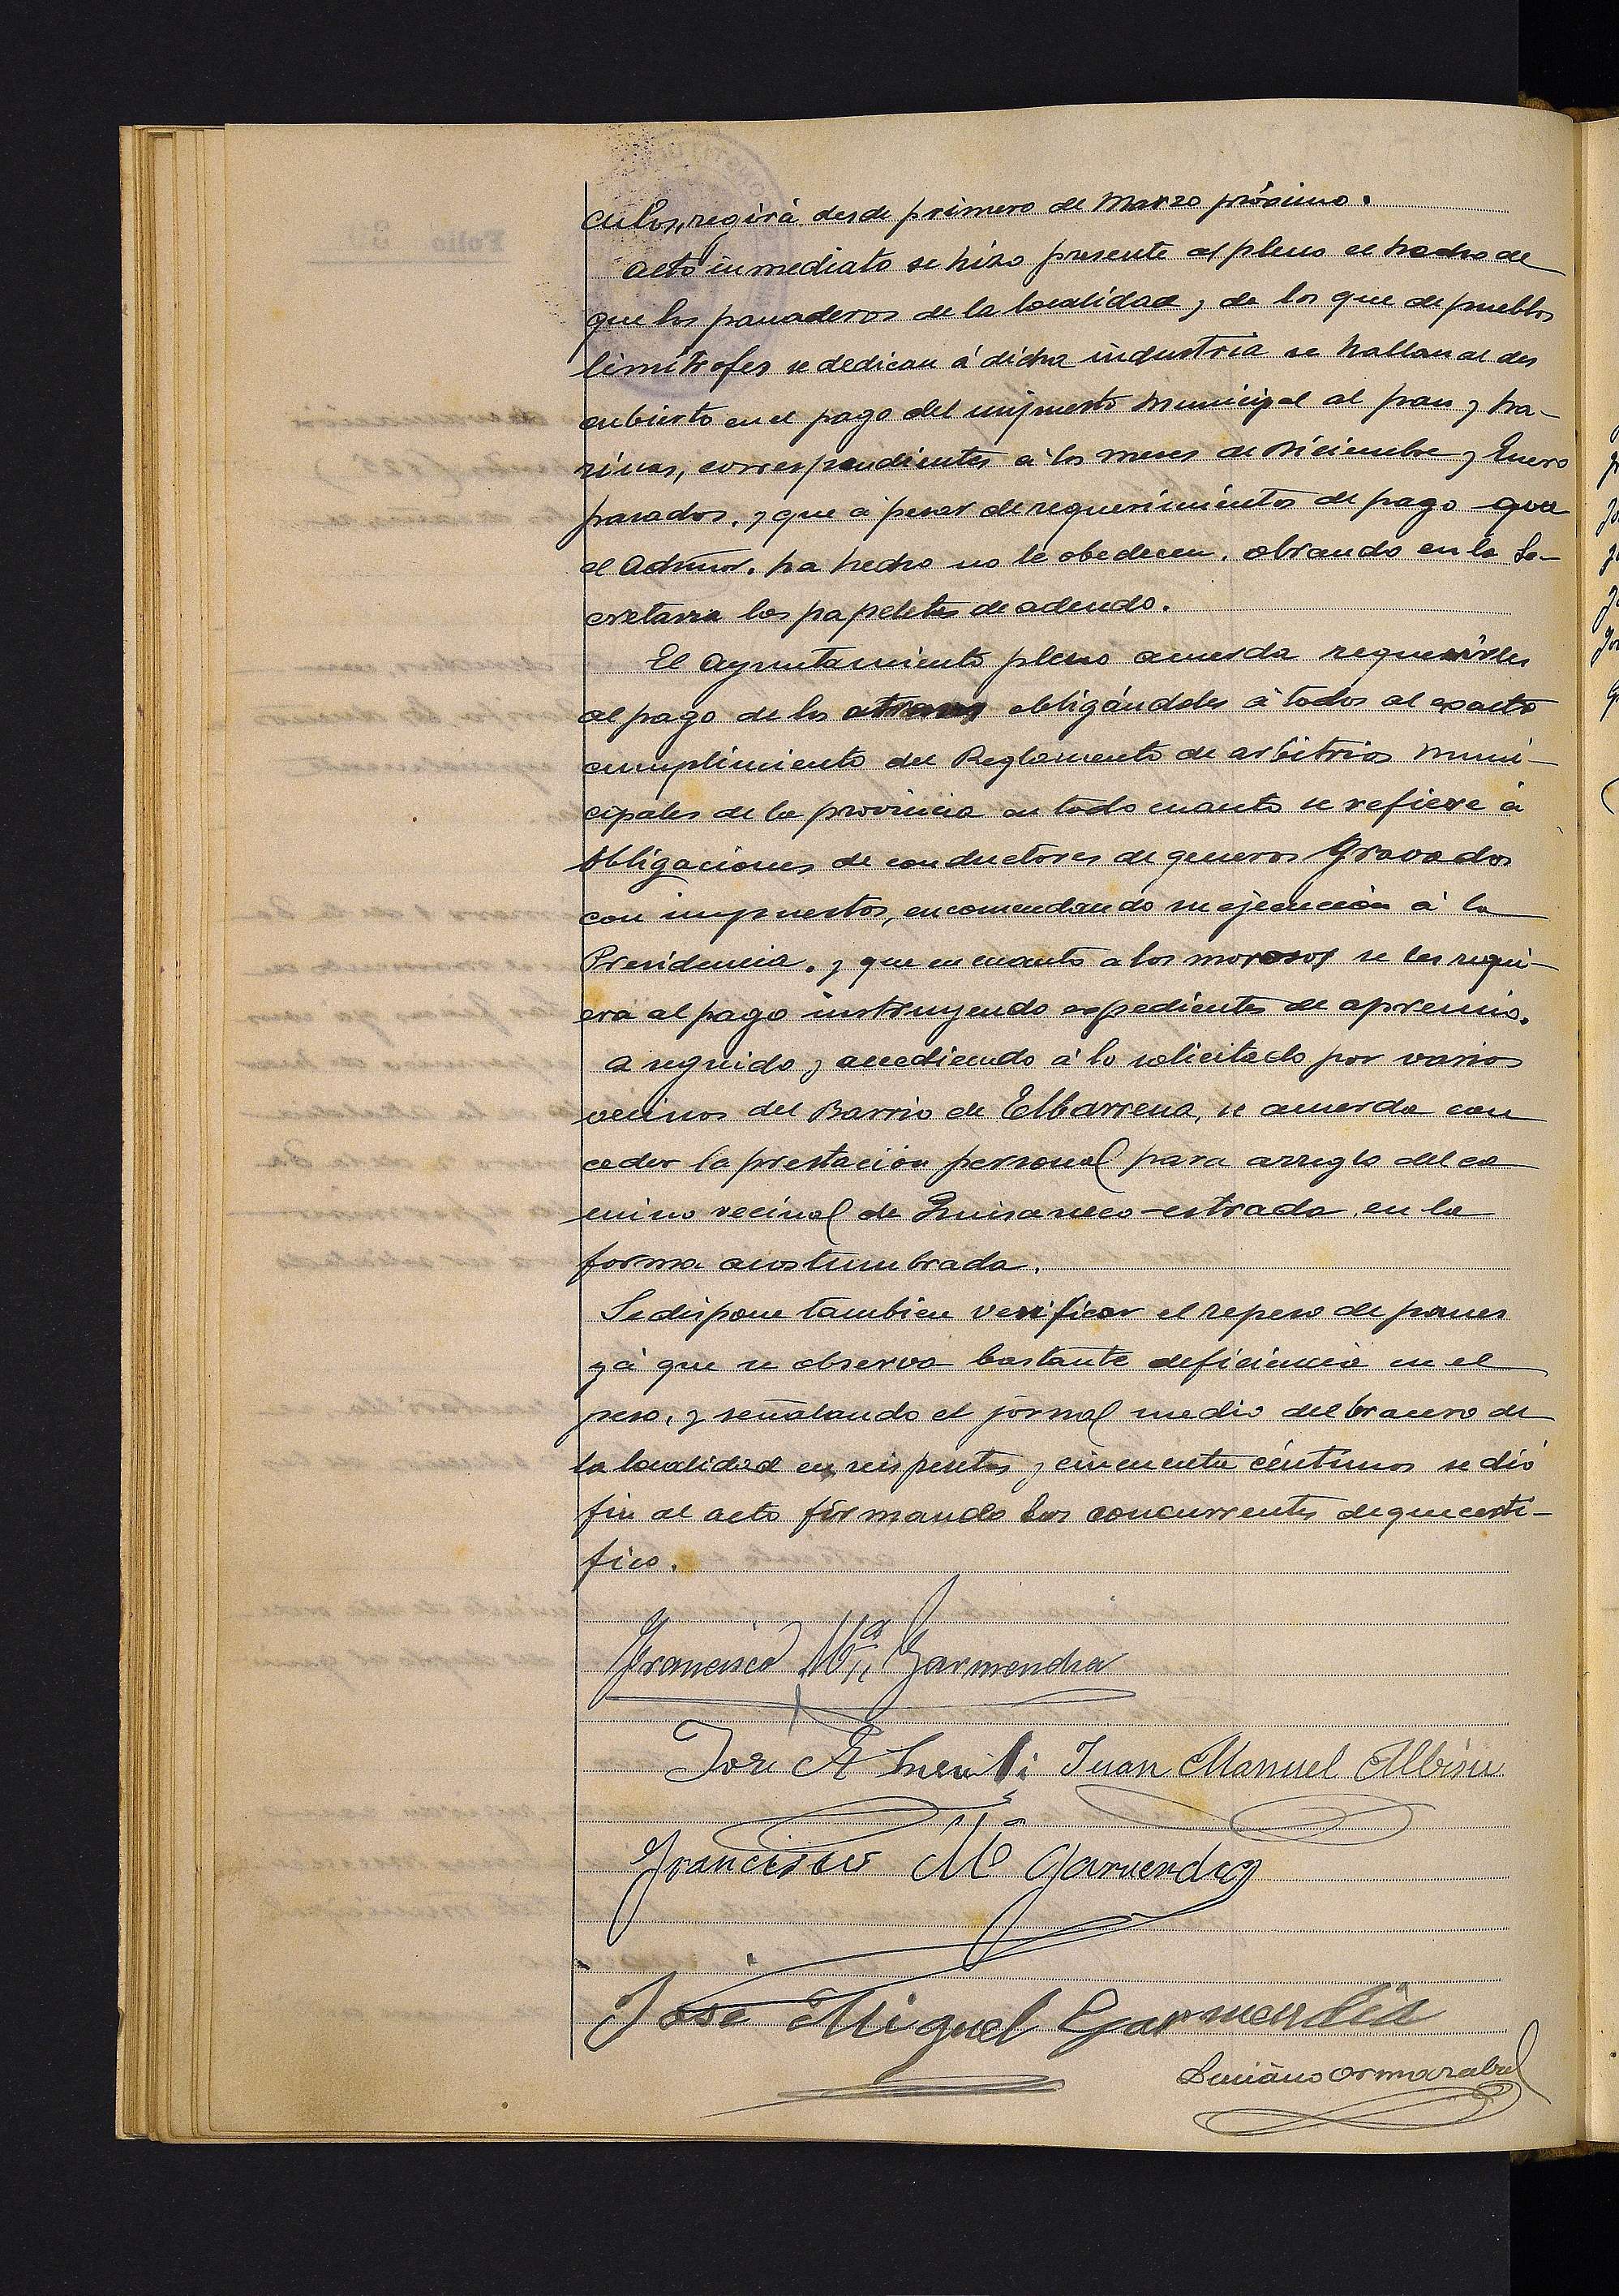 culos, regirá desde primero de Marzo próximo.
Acto inmediato se hizo presente al pleno el hecho de
que los panaderos de la localidad y de los que de pueblos
limítrofes se dedican á dicha industria se hallan al des
cubierto en el pago del impuesto municipal al pan y ha-
rinas, correspondientes á los meses de Diciembre y Enero
pasados, y que á pesar de requerimientos de pago que
el Admor. ha hecho no le obedecen, obrando en la Se-
cretaria las papeletas de adeudo.
El Ayuntamiento pleno acuerda requerirles
al pago de los atrasos obligándoles á todos al exacto
cumplimiento del Reglamento de arbitrios muni-
cipales de la provincia en todo cuanto se refiere á
obligaciones de conductores de generos gravados
con impuestos, encomendando su ejecución á la
Presidencia, y que en cuanto a los morosos se les requi-
era al pago instruyendo expedientes de apremio.
A seguido y accediendo á lo solicitado por varios
vecinos del Barrio de Elbarrena, se acuerda con
ceder la prestación personal para arreglo del ca
mino vecinal de estrada, en la
forma acostumbrada.
Se dispone tambien verificar el repeso de panes
yá que se observa bastante deficiencia en el
peso, y señalando el jornal medio del bracero de
la localidad en seis pesetas y cincuenta céntimos se dió
fin al acto firmando los concurrentes de que certi-
fico.
Francisco Mª Garmendia
Jose A Juan Manuel Albisu
Francisco Mª Garmendia
José Miguel Garmendia
Luciano Ormazabal